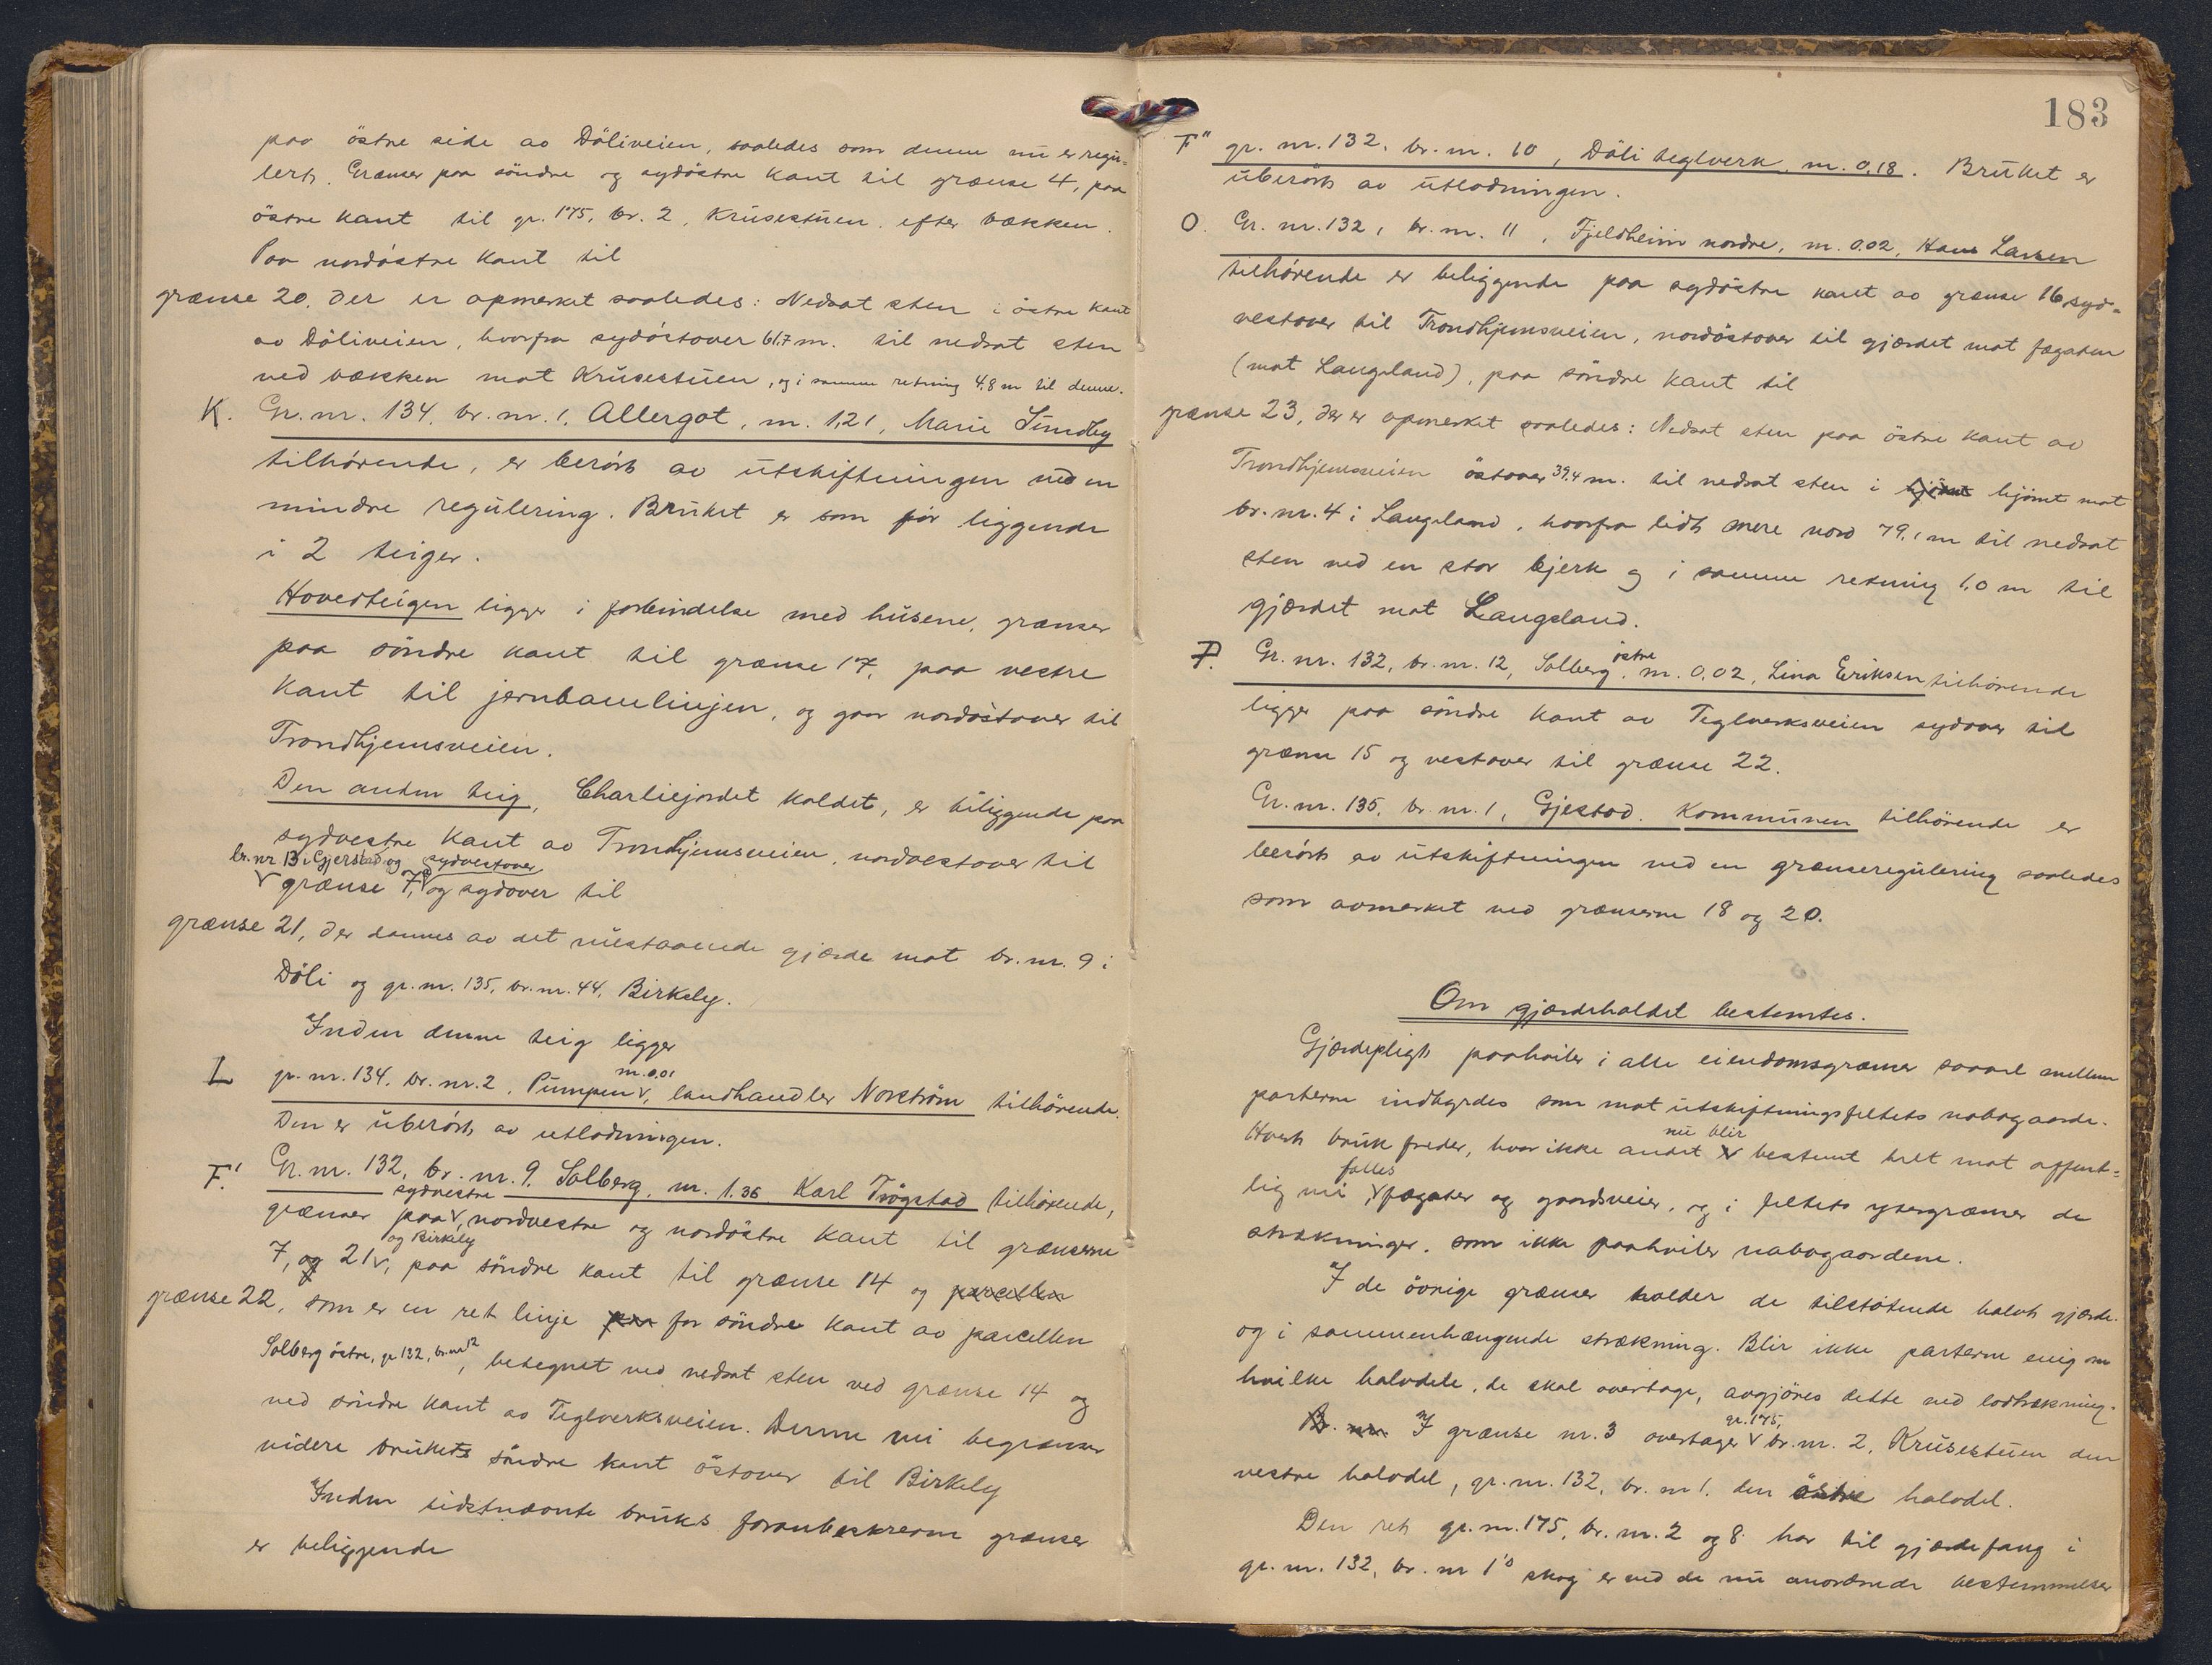 paa östre side av Döliveien, saaledes som denne nu er regu-
lert. Grænser paa söndre og sydöstre kant til grænse 4, paa
östre kant til gr. 175, br. 2, Krusestuen, efter bækken.
Paa nordöstre kant til
grænse 20, der er opmerket saaledes: Nedsat sten i östre kant
av Döliveien, hvorfra sydöstover 61,7 m. til nedsat sten
ved bækken mot Krusestuen, og i samme retning 4,8 m til denne.
K. Gr. nr. 134, br. nr. 1, Allergot, m. 1,21, Marie Sundby
tilhörende, er berört av utskiftningen ved en
mindre regulering. Bruket er som för liggende
i 2 teiger.
Hovedteigen ligger i forbindelse med husene, grænser
paa söndre kant til grænse 17, paa vestre
kant til jernbanelinjen, og gaar nordöstover til
Trondhjemsveien.
Den anden teig, Charliejordet kaldet, er beliggende paa
sydvestre kant av Trondhjemsveien, nordvestover til
br. nr 13 i Gjerstad og sydvestover
grænse 7, og sydover til
grænse 21, der dannes av det nuestaaende gjærde mot br. nr. 9 i
Döli og gr. nr. 135, br. nr. 44, Birkely.
Inden denne teig ligger
m. 0,01
L gr. nr. 134, br. nr. 2, Pumpen, landhandler Norström tilhörende.
Den er uberört av utlodningen.
F.' Gr. nr. 132, br. nr. 9, Solberg, m. 1.36 Karl Trögstad tilhörende,
sydvestre
grænser paa, nordvestre og nordöstre kant til grænserne
og Birkely
7, og 21, paa söndre kant til grænse 14 og parcellen
grænse 22, som er en ret linje paa for söndre kant av parcellen
Solberg östre, gr 132, br. nr 12, betegnet ved nedsat sten ved grænse 14 og
ved söndre kant av Teglverksveien. Denne vei begrænser
videre brukets söndre kant östover til Birkely
Inden sidstnævnte bruks foranbeskrevne grænser
er beliggende
183
F" gr. nr. 132, br. nr. 10, Döli teglverk, m. 0,18. Bruket er
uberört av utlodningen.
O. Gr. nr. 132, br. nr. 11, Fjeldheim nordre, m. 0.02, Hans Larsen
tilhörende er beliggende paa sydöstre kant av grænse 16, syd-
vestover til Trondhjemsveien, nordöstover til gjærdet mot fægaten
(mot Langeland), paa söndre kant til
grænse 23, der er opmerket saaledes: Nedsat sten paa östre kant av
Trondhjemsveien östover 39.4 m. til nedsat sten i hjörnet hjörnet mot
br. nr. 4 i Langeland, hvorfra lidt mere nord 79,1 m til nedsat
sten ved en stor bjerk og i samme retning 1,0 m til
gjærdet mot Langeland.
östre
P. Gr. nr. 132, br. nr. 12, Solberg, m. 0,02, Lina Eriksen tilhörende
ligger paa söndre kant av Teglverksveien sydover til
grænse 15 og vestover til grænse 22.
Gr. nr. 135, br. nr. 1, Gjestad. Kommunen tilhörende er
berört av utskiftningen ved en grænseregulering saaledes
som avmerket ved grænserne 18 og 20.
Om gjærdeholdet bestemtes.
Gjærdepligt paahviler i alle eiendomsgrænser saavel mellem
parterne indbyrdes som mot utskiftningsfeltets nabogaarde.
nu blir
Hvert bruk freder, hvor ikke andet er bestemt helt mot offent-
fælles
lig vei, fægater og gaardsveier, og i feltets ytergrænser de
strækninger, som ikke paahviler nabogaardene.
I de övrige grænser holder de tilstötende halvt gjærde
og i sammenhængende strækning. Blir ikke parterne enig om
hvilke halvdele, de skal overtage, avgjöres dette ved lodtrækning.
gr. 175,
B. nr. I grænse nr. 3 overtager br. nr. 2, Krusestuen den
vestre halvdel, gr. nr. 132, br. nr 1. den östre halvdel.
Den ret gr. nr. 175, br. nr. 2 og 8 har til gjærdefang i
gr. nr. 132, br. nr 1's skog er ved de nu anordnede bestemmelser